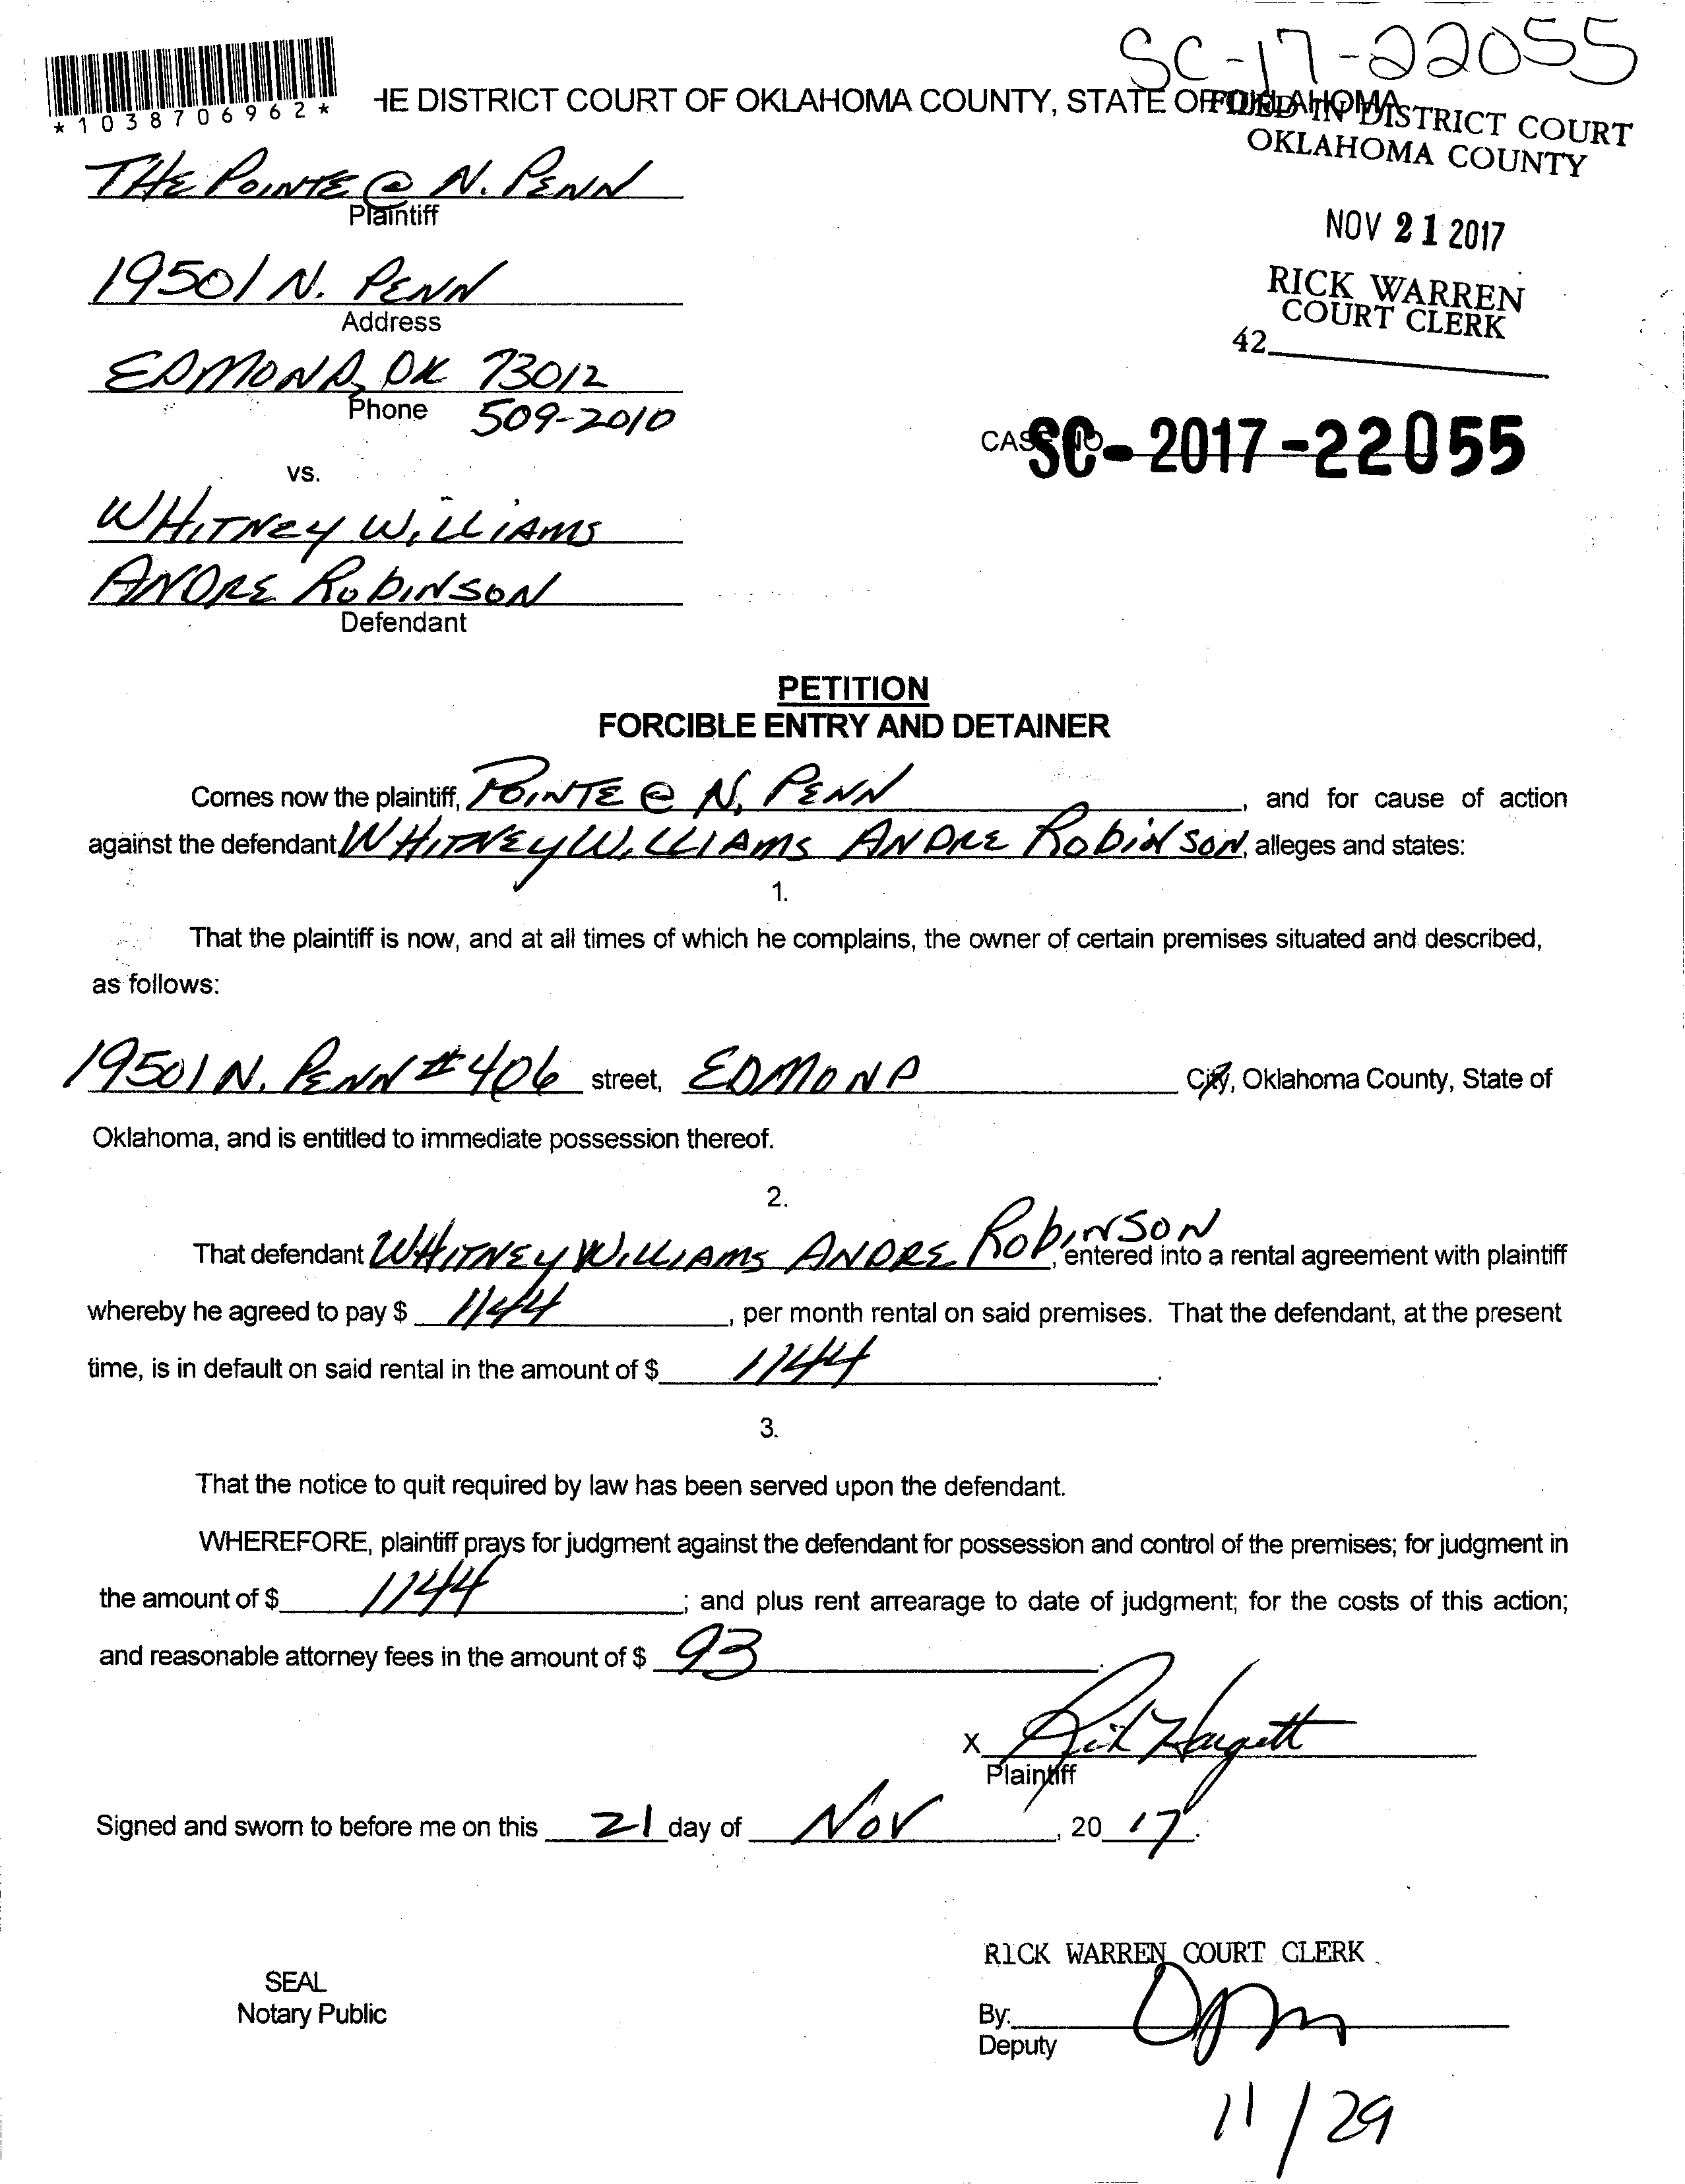 SC-17-22055
*1038706962*
HE DISTRICT COURT OF OKLAHOMA COUNTY, STATE OF OKLAHOMA
FILED IN DISTRICT COURT
OKLAHOMA COUNTY
THE POINTE @ N. PENN
Plaintiff
NOV 21 2017
19501 N. PENN
Address
RICK WARREN
COURT CLERK
42
EDMOND, OK 73012
Phone 509-2010
CASE NO. SC-2017-22055
vs.
WHITNEY WILLIAMS
ANDRE ROBINSON
Defendant
PETITION
FORCIBLE ENTRY AND DETAINER
Comes now the plaintiff, POINTE @ N. PENN, and for cause of action
against the defendant WHITNEY WILLIAMS ANDRE ROBINSON, alleges and states:
1.
That the plaintiff is now, and at all times of which he complains, the owner of certain premises situated and described,
as follows:
19501 N. PENN #406 street, EDMOND City, Oklahoma County, State of
Oklahoma, and is entitled to immediate possession thereof.
2.
That defendant WHITNEY WILLIAMS ANDRE ROBINSON, entered into a rental agreement with plaintiff
whereby he agreed to pay $ 1144, per month rental on said premises. That the defendant, at the present
time, is in default on said rental in the amount of $ 1144.
3.
That the notice to quit required by law has been served upon the defendant.
WHEREFORE, plaintiff prays for judgment against the defendant for possession and control of the premises; for judgment in
the amount of $ 1144; and plus rent arrearage to date of judgment; for the costs of this action;
and reasonable attorney fees in the amount of $ 93.
X Rick Hargett
Plaintiff
Signed and sworn to before me on this 21 day of Nov, 20 17.
RICK WARREN COURT CLERK
SEAL
Notary Public
By:
Deputy
11/29